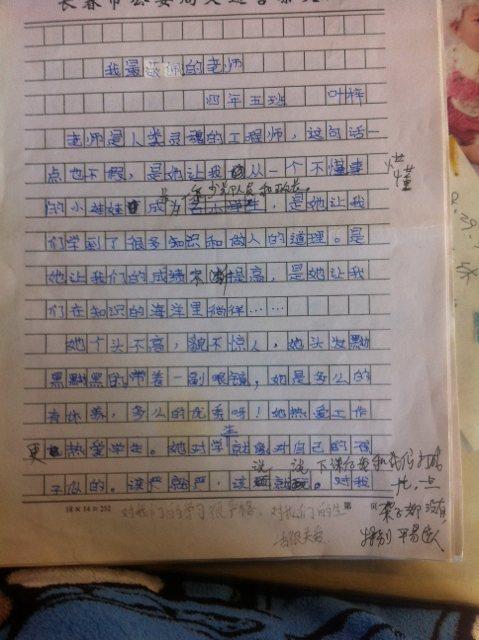 我最敬佩的老师
四年五班 叶梓
老师是人类灵魂的工程师，这句话一
点也不假，是她让我从一个不懂事
懂
的小娃娃成为
少先队员和班长。
是她让我
们学到了很多知识和做人的道理。是
她让我们的成绩不断提高，是她让我
们在知识的海洋里徜徉……
她个头不高，貌不惊人，她头发黝
黑黝黑的带着一副眼镜，她是多么的
有修养，多么的优秀呀！她热爱工作
更热爱学生。她对学生就像对自己的孩
子似的。该严就严，该玩就玩。对我
说 说 下课后
和我们打成
一片，一点
架子都没有，
特别平易近人
对我们的学习很严格，对我们的生
活很关爱
18×14=252 第 页